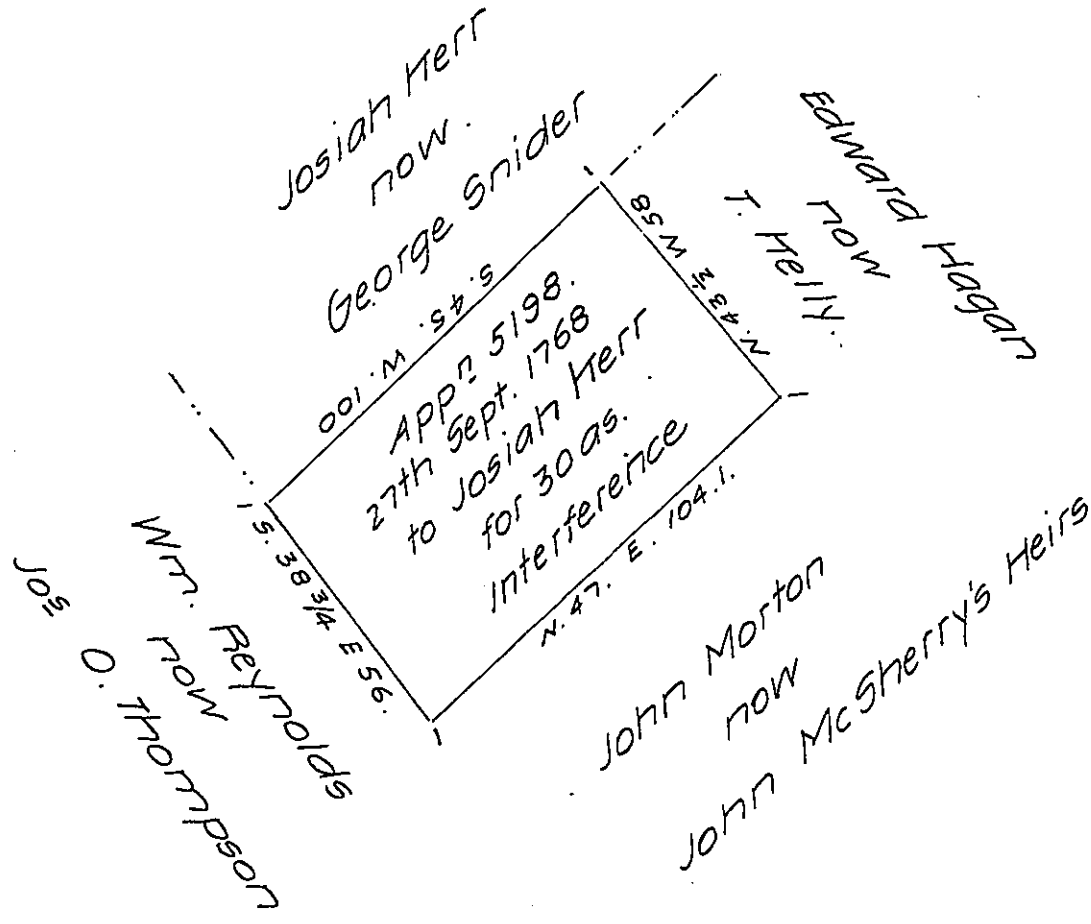 Josiah Kerr
now.
George Snider
Edward Hagan
now
T. Kelly.
S. 45. W. 100
N. 43½ W 58
App<sup>n</sup> 5198.
27th Sept. 1768
to Josiah Kerr
for 30 as.
Interference
S. 38 3/4 E 56.
N. 47. E. 104.1.
Wm. Reynolds
now
Jos O. Thompson
John Morton
now
John McSherry's Heirs